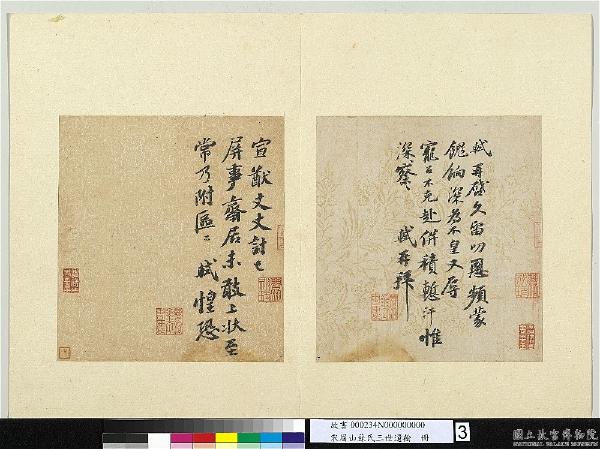 軾再啓久留叨恩頻蒙
餽餉深為不皇又辱
寵召不克赴併積慙汗惟
深察 軾再拜
宣猷丈丈計已
屏事齋居未敢上狀至
常乃附區〻軾惶恐
故書 000234N000000000
宋眉山蘇氏三世遺翰 冊
3
國立故宮博物院
NATIONAL PALACE MUSEUM